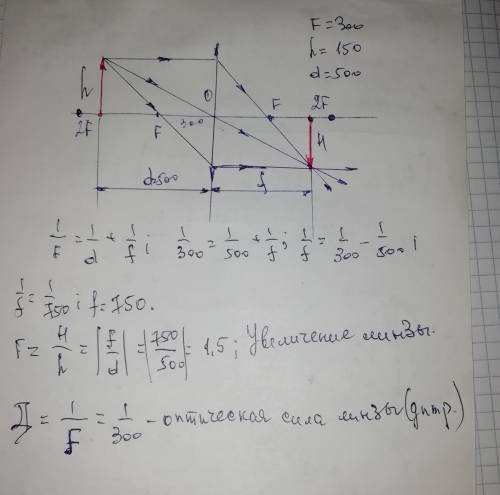 F=300
h=150
d=500
h
O
2F
F
300
F
2F
H
d=500
f
1/F = 1/d + 1/f ; 1/300 = 1/500 + 1/f ; 1/f = 1/300 - 1/500 ;
1/f = 1/750 ; f=750.
Г = H/h = |f/d| = |750/500| = 1,5 ; Увеличение линзы.
Д = 1/F = 1/300 - оптическая сила линзы (дптр.)